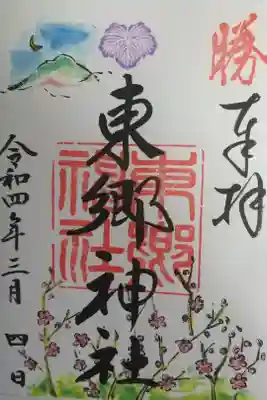 勝
奉拝
東郷神社
東郷
神社
令和四年三月四日